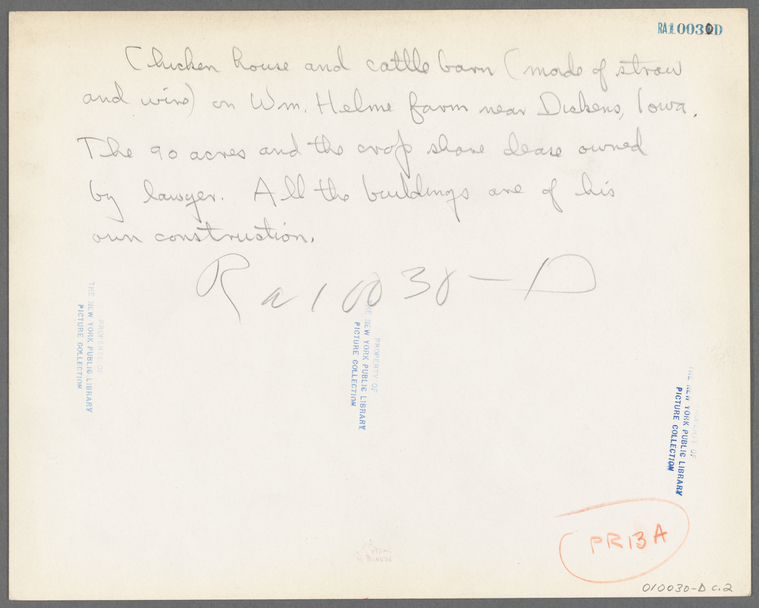 RA10030D
Chicken house and cattle barn (made of straw
and wire) on Wm. Helme farm near Dickens, Iowa.
The 90 acres and the crop share lease owned
by lawyer. All the buildings are of his
own construction.
Ra 10030-D
PROPERTY OF
THE NEW YORK PUBLIC LIBRARY
PICTURE COLLECTION
PROPERTY OF
THE NEW YORK PUBLIC LIBRARY
PICTURE COLLECTION
PROPERTY OF
THE NEW YORK PUBLIC LIBRARY
PICTURE COLLECTION
PR13A
010030-D c.2